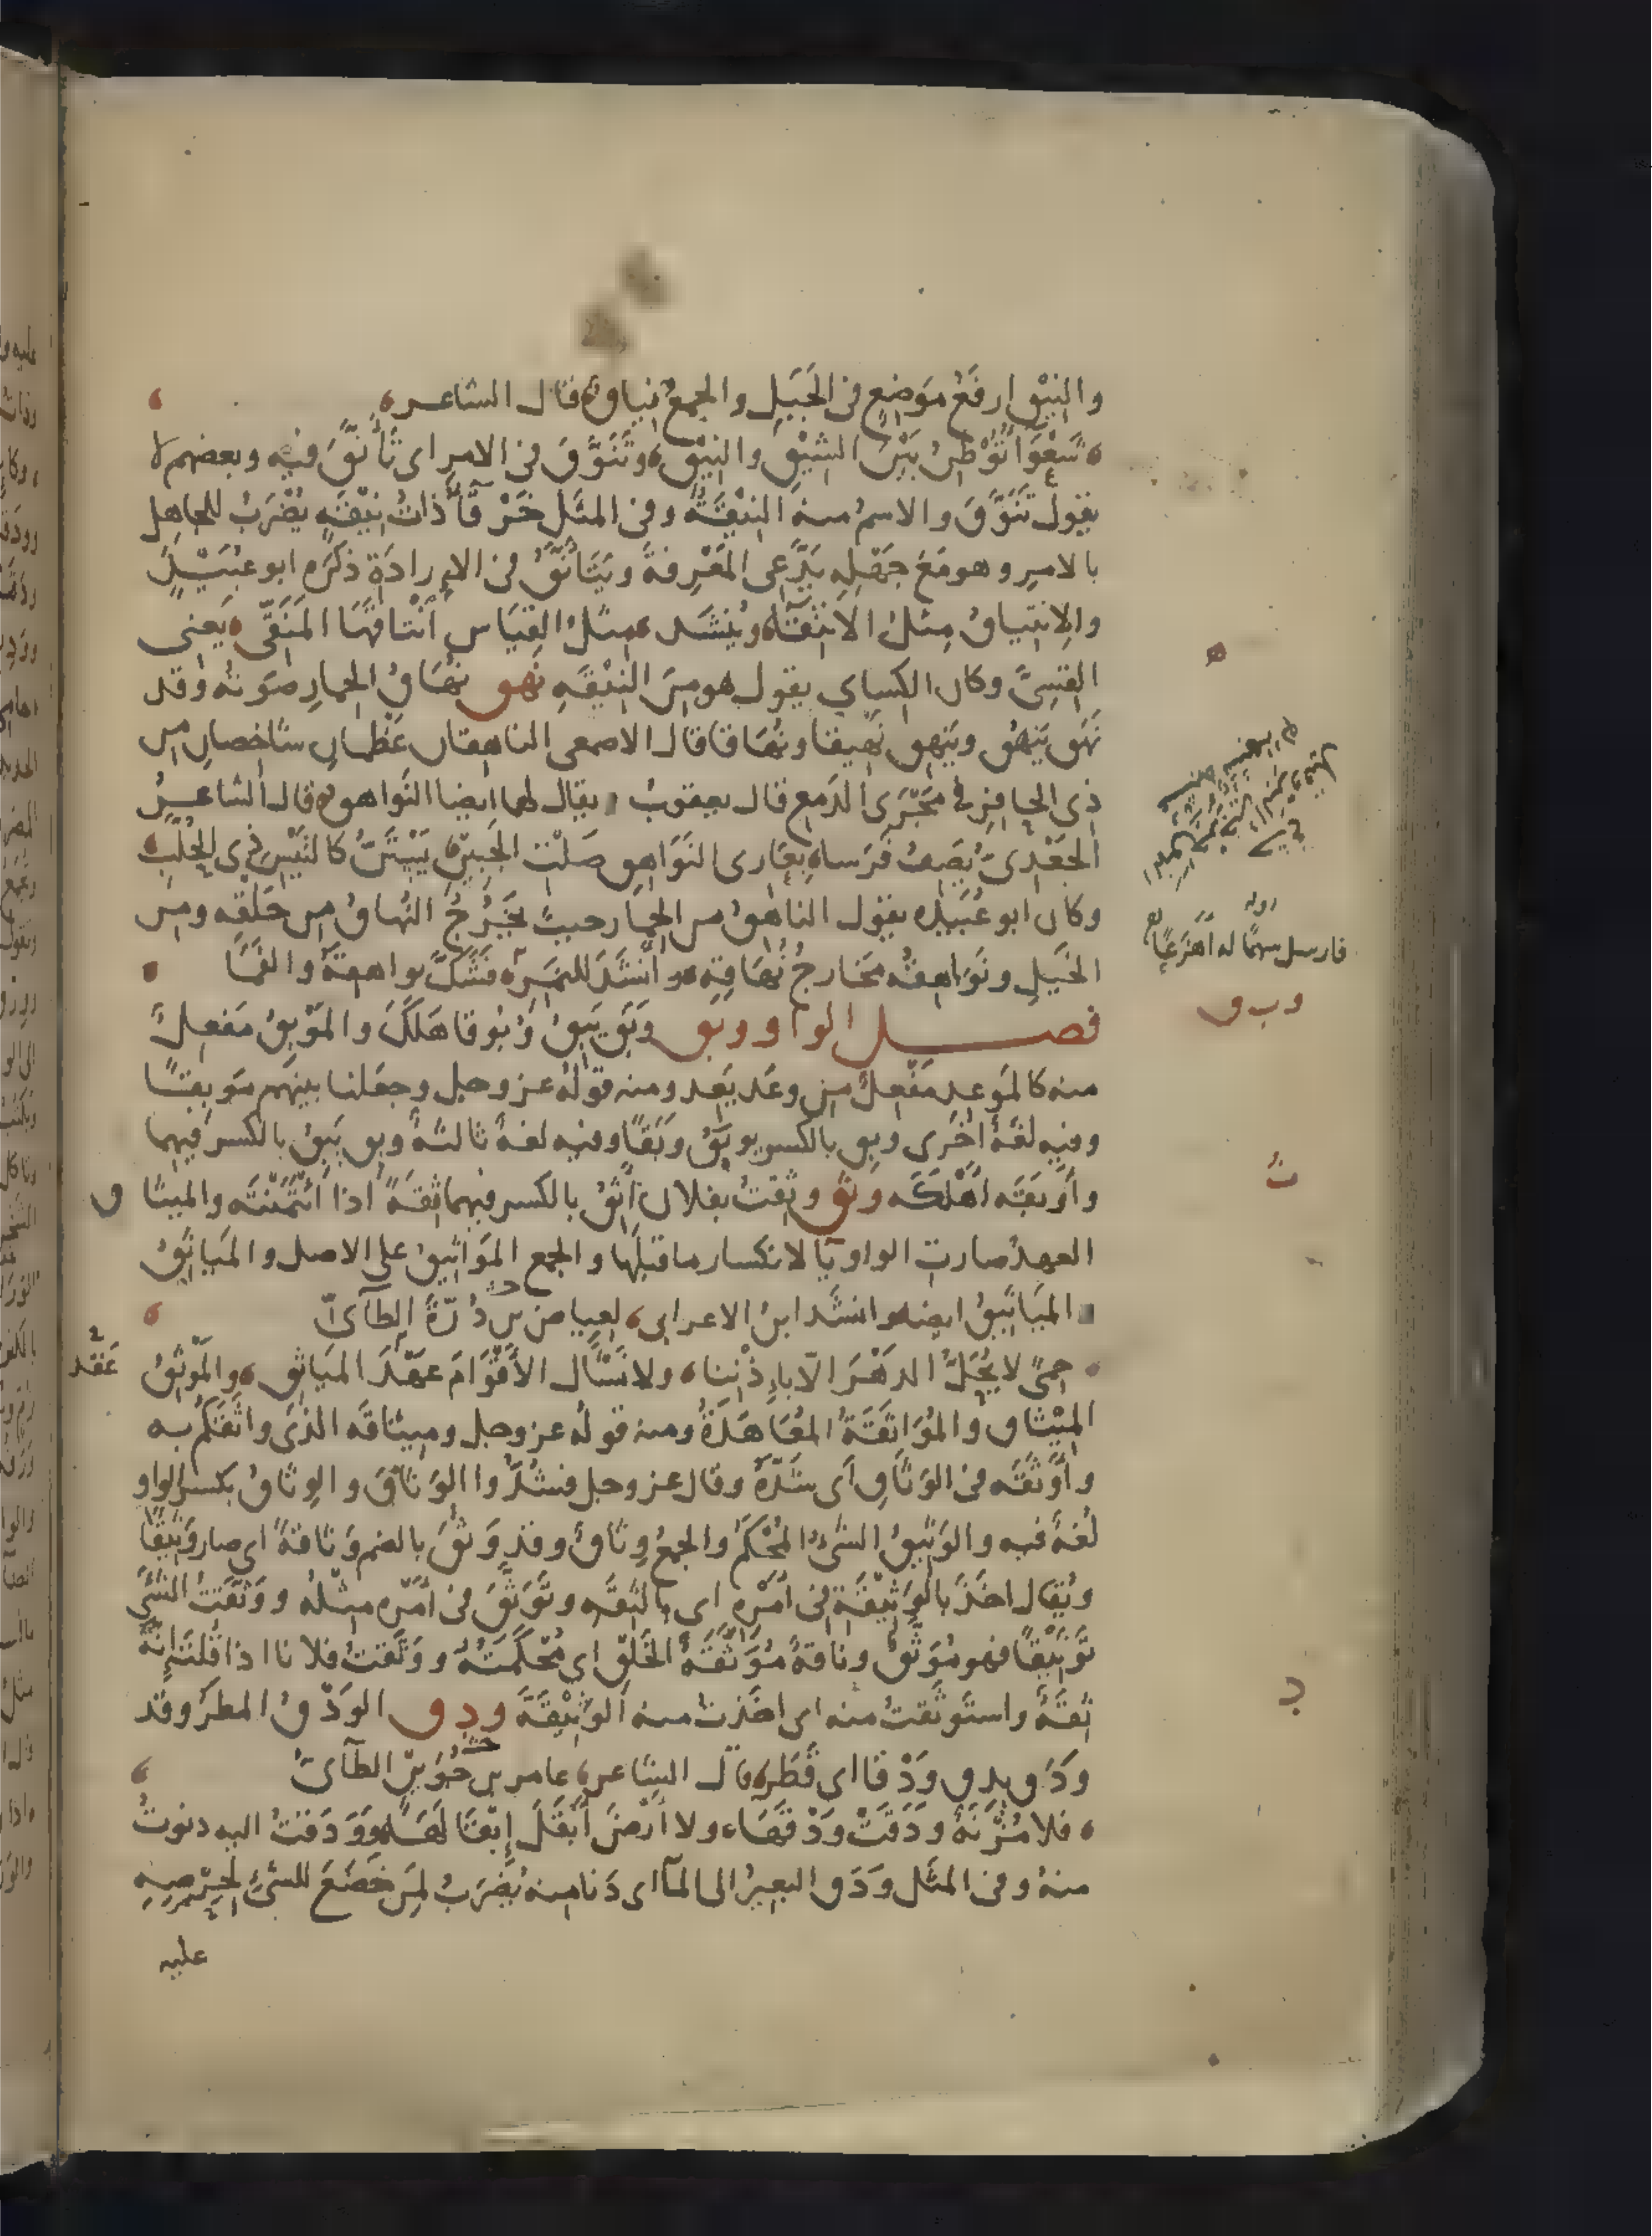 والنِيْق ارفَعُ مَوضِعٍ فى الجَبَلِ والجمعُ نِياق قال الشاعر
شَغْوَا تُوْطِنُ بَيْنَ الشِيْقِ والنِيْقِ وتَنَوَّقَ فى الامرِ اى تَأَنَّقَ فيه وبعضهم لا
يقول تَنَوَّقَ والاسمُ منه النِيْقَةُ وفى المثَل خَرْقَآءُ ذاتُ نِيْقَه يُضْرَبُ للجاهِلِ
بالامرِ وهو مَعَ جَهْلِهِ يَدَّعِى المَعْرِفَةَ ويَتَأَنَّقُ فى الإِرادَةِ ذَكَرَه ابو عُبَيْدٍ
والاِنتِياقُ مِثلُ الانتقآء ويُنشَد مثلُ القِيَاسِ اَنْتَاقَهَا المُنَقِّى يَعنى
القِسِىَّ وكان الكسايى يقول هو مِنَ النِيْقَهِ نهق نُهَاقُ الحِمارِ صَوتُه وقد
نَهَقَ يَنهَقُ ويَنهِق نَهِيقا ونُهَاقا قال الاصمعى الناهِقان عَظْمانِ شاخِصانِ مِن
ذى الحافِرِ فى مَجْرَى الدَمع قال يعقوبُ يقال لهما ايضا النَواهِق قال الشاعرُ
الجَعْدِىّ يَصِفُ فَرَسا بِعَارى النَوَاهِقِ صَلْتِ الجَبِيْنِ يَسْتَنُّ كالتَيْسِ ذى الحُلَّبِ
وكان ابو عُبَيْده يقول الناهِقُ من الحِمَار حيثُ يَخْرُجُ النُهاقُ مِن حَلْقِهِ ومِنَ
الخَيلِ ونَوَاهِقُه مَخَارجُ نُهَاقِهِ وانشَدَ للنَمِرِ فَشَكَّ نواهِقَهُ والفَمَا
فصل الواو وبق وَبَقَ يَبِقُ وُبُوقا هَلَكَ والمَوْبِقُ مَفعِلٌ
منه كالمَوعِد مَفْعِلٌ مِن وعَد يَعِد ومنه قولُه عز وجل وجعلنا بينهم مَوبِقًا
وفيهِ لغَةٌ اخرى وبِق بالكسر يوبَقُ وَبَقًا وفيه لغةٌ ثالثةٌ وبِق يَبِقُ بالكسر فيهما
واَوبَقَه اَهْلَكَه وثق وثِقتُ بفلان اَثِقُ بالكسر فيهما ثِقَةً اذا ائتَمَنْتَه والميثا ق
العهدُ صارتِ الواو يآ لانكسار ما قبلَها والجمع المَوَاثيقُ على الاصل والمَياثِقُ
المَيَاثيقُ ايضا وانشَد ابنُ الاعرابى لعياض بن دُرّةَ الطآىّ
حِمًى لا يُحَلُّ الدهْرَ الّا بِاِذْنِنا ولا نَسْأَل الاَقْوَامَ عَهْدَ المَيَاثِقِ والمَوْثِقُ
عَقْد
المِيْثاق والمُوَاثَقَةُ المُعَاهَدَةُ ومنه قوله عز وجل وميثاقَه الذى واثَقَكم به
واَوْثَقَه فى الوَثاقِ اَى شَدَّهُ وقال عز وجل فشُدُّوا الوَثاقَ والوِثاقُ بكسر الواو
لُغةٌ فيه والوَثيقُ الشىُ المُحْكَمُ والجمعُ وِثاقٌ وقد وَثُقَ بالضم وَثاقةً اى صار وَثِيقًا
ويُقال اخَذَ بالوَثِيْقَةِ فى اَمْرِهِ اى بالثِقَه وتَوَثَّقَ فى اَمْرِه مِثْلُه ووَثَّقتُ الشَىَ
تَوْثِيْقًا فهو مُوَثَّقٌ وناقةٌ مُوَثَّقَةُ الخَلْقِ اى مُحْكَمَتُهُ ووَثَّقتُ فلانا اذا قُلتَ إِنّهُ
ثِقَةٌ واستَوثَقتُ منه اى اخَذتُ منه الوَثِيْقَةَ ودق الوَدْقُ المطَرُ وقد
وَدَقَ يدِق وَدْقًا اى قَطَر قال الشاعر عامر بن جُوَيْنٍ الطآىُ
فلا مُزْنَةٌ وَدَقَتْ وَدْقَهَا ولا اَرضَ اَبْقَلَ إِبْقَالَهَا ووَدَقتُ اليه دنوتُ
منهُ وفى المثَل وَدَقَ البعيرُ الى المآ اى دَنا منه يُضرَبُ لمَن خَضَعَ للشىءِ لِحِرْصِهِ
عليه
ه
فارسل سهمًا له اَهْزَعًا
و ب ق
ث
د